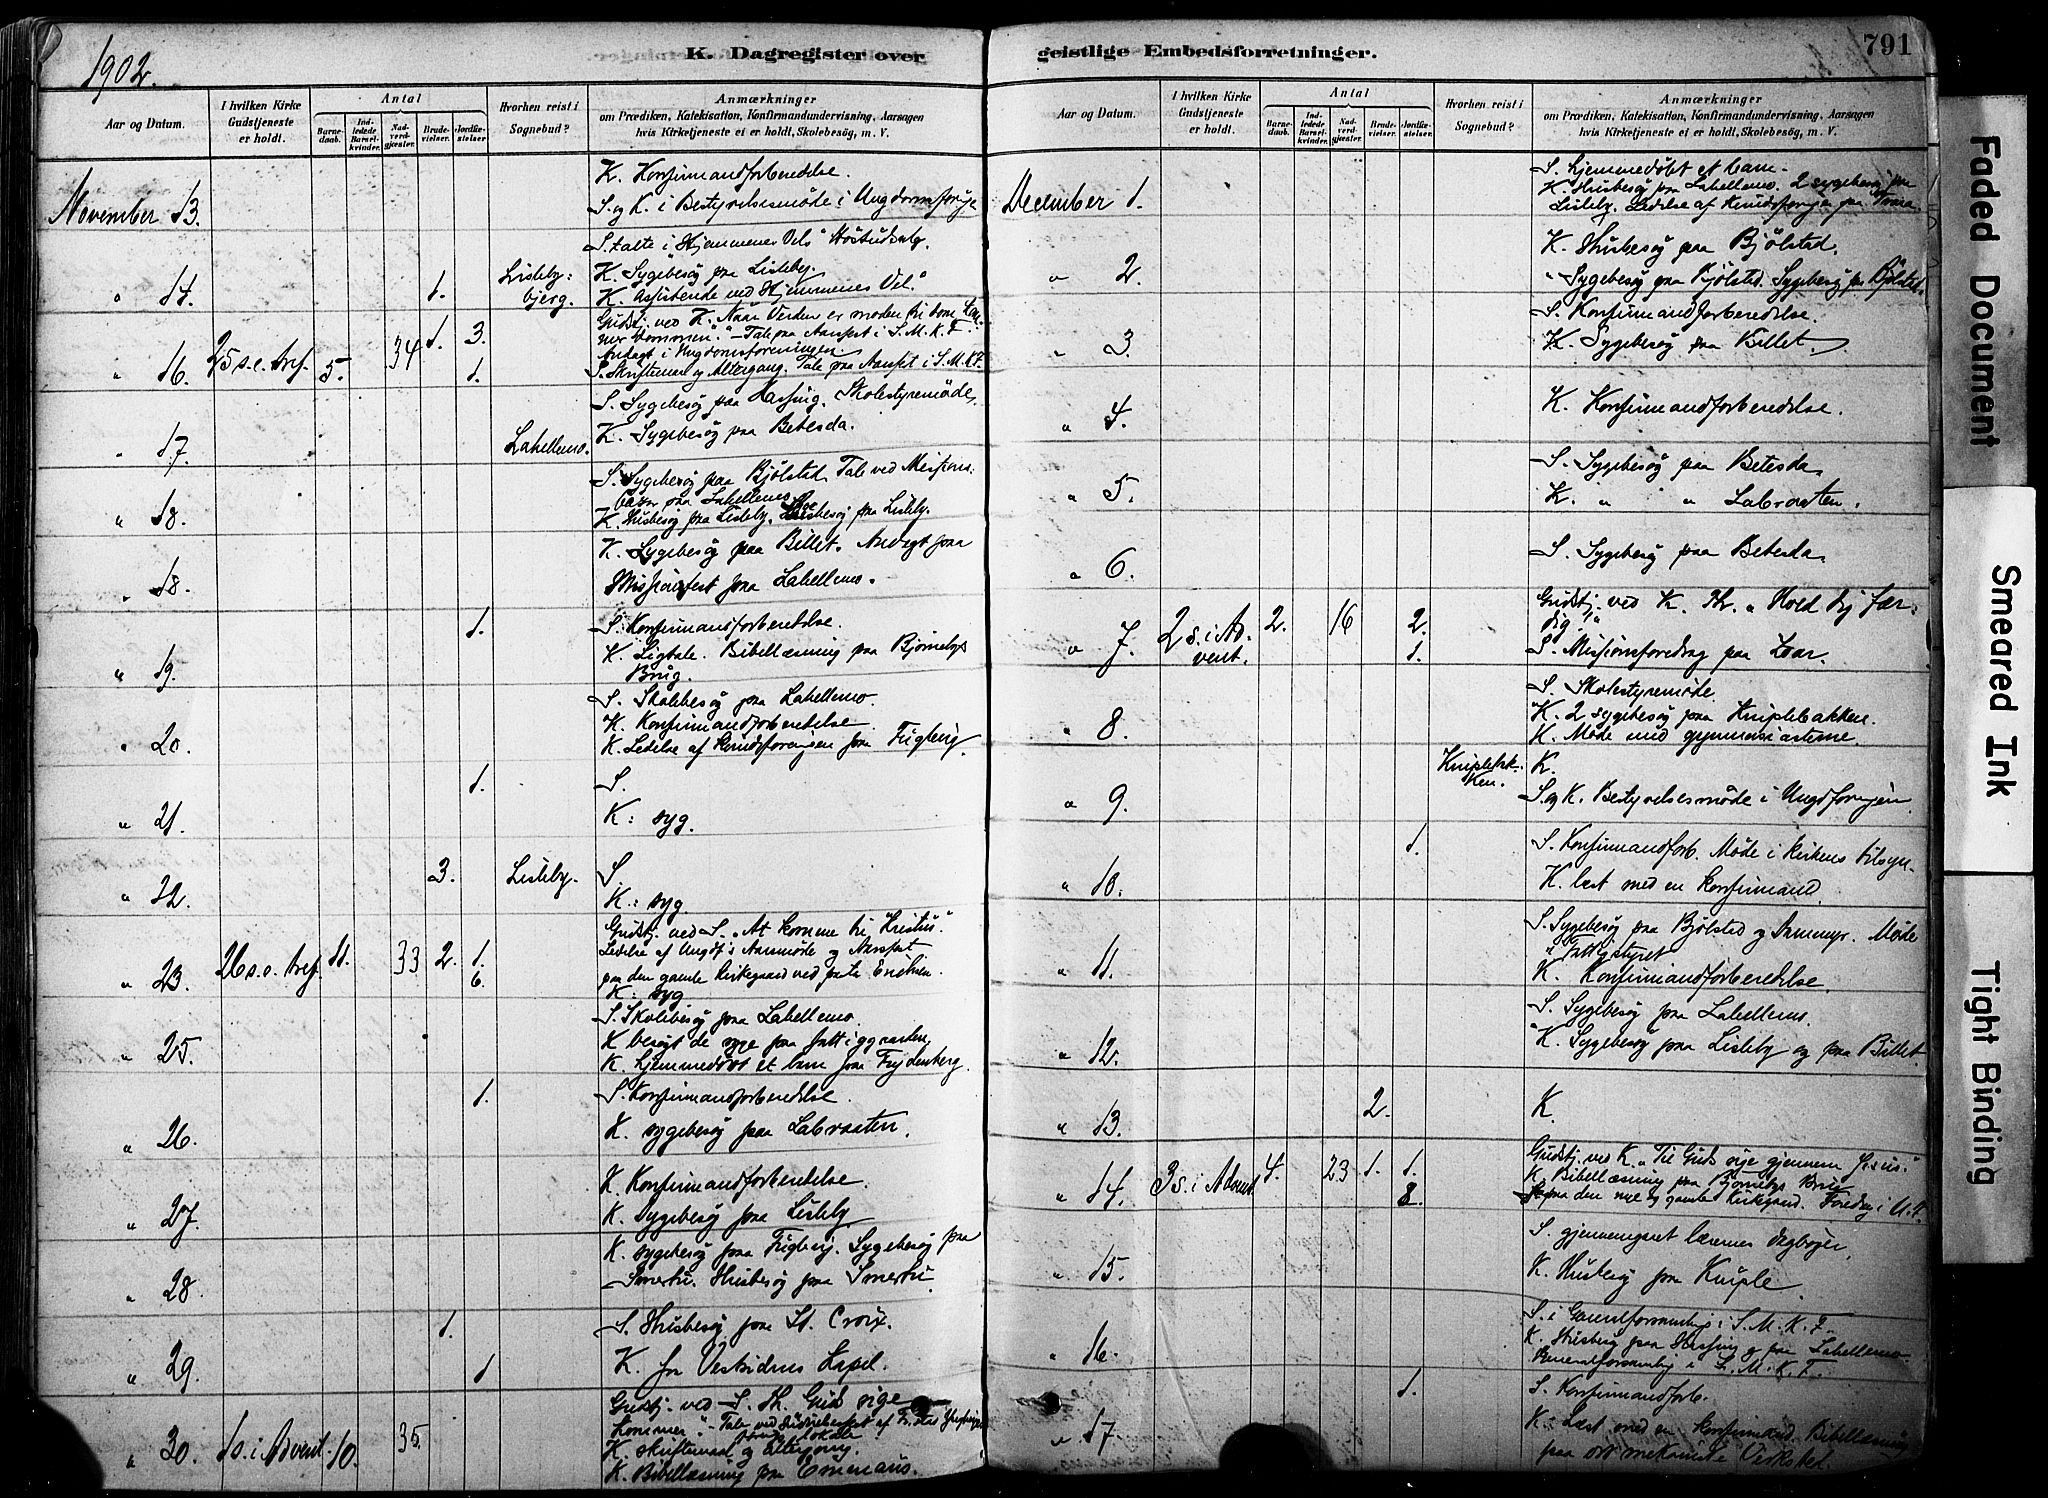 K. Dagregister over
geistlige Embedsforretninger.
791
1902.
Aar og Datum.
I hvilken Kirke Gudstjeneste er holdt.
Antal
Barnedaab.
Indledede Barselkvinder.
Nadverdgjester.
Brudevielser.
Jordfæstelser
Hvorhen reist i Sognebud?
Anmærkninger
om Prædiken, Katekisation, Konfirmandundervisning, Aarsagen
hvis Kirketjeneste ei er holdt, Skolebesög, m. V.
November 13.
K. Konfirmandforberedelse.
S. og K. i Bestyrelsesmøde i Ungdomsforen
" 14.
1.
Lisleby:
bjerg.
S. talte i Hjemmenes Vels
K. Sygebesøg paa Lisleby.
K. Assisterede ved Hjemmenes Vel."
" 16.
25 s. e. tref.
5.
34
1.
3.
1.
Gudstj. ved K. Naar Verden er moden til dom
Tale paa Aarsfest i S. M. K. F.
Andagt i Ungdomsforeningen
S. Skriftemaal og Altergang. Tale paa Aarsfest i S. M. K. F.
" 17.
Lahellemo.
S. Sygebesøg paa Hassing. Skolestyremøde.
K. Sygebesøg paa Betesda.
" 18.
S. Sygebesøg paa Bjølstad. Tale ved Missions
paa Lahellemo
K. Husbesøg paa Lisleby. paa Lisleby.
" 18.
K. Sygebesøg paa Billet. Andagt paa
Missionsfest paa Lahellemo.
" 19.
1.
S. Konfirmandforberedelse.
K. Ligtale. Bibellæsning paa Bjørneby
Brug.
" 20.
S. Skolebesøg paa Lahellemo.
K. Konfirmandforberedelse
K. Ledelse af paa Fuglevig.
" 21.
1.
S.
K: syg.
" 22.
3.
Lisleby.
S
K: syg
" 23.
26 s. e. tref.
11.
33
2.
1.
6.
Gudstj. ved S. "At komme til Kristus."
Ledelse af Ungdf's Aarsmøde og Aarsfest
paa den gamle Kirkegaard ved
K: syg
" 25.
S. Skolebesøg paa Lahellemo
K besøgt de syge paa fattiggaarden.
K. hjemmedøbt et barn paa Frydenberg.
" 26.
1.
S. Konfirmandforberedelse.
K. sygebesøg paa Labraaten.
" 27.
K. Konfirmandforberedelse.
K. sygebesøg paa Lisleby
" 28.
K. sygebesøg paa Sygebesøg paa
Smertu. Husbesøg paa Smertu.
" 29.
1.
1
S. Husbesøg paa St. Croix.
K. for Vestsidens Kapel.
" 30.
1 s. i Advent.
10.
35.
Gudstj. ved S. Th. Guds rige
kommer." Tale ved
K. skriftemaal og altergang.
K. Bibellæsning paa Emmaus.
Aar og Datum.
I hvilken Kirke Gudstjeneste er holdt.
Antal
Barnedaab.
Indledede Barselkvinder.
Nadverdgjester.
Brudevielser.
Jordfæstelser
Hvorhen reist i Sognebud?
Anmærkninger
om Prædiken, Katekisation, Konfirmandundervisning, Aarsagen
hvis Kirketjeneste ei er holdt, Skolebesög, m. V.
December 1.
S. hjemmedøbt et barn.
K. Husbesøg paa Lahellemo. 2 sygebesøg paa
Lisleby. Ledelse af paa
" 2.
K. Husbesøg paa Bjølstad.
" Sygebesøg paa Bjølstad. Sygebesøg paa Bjølstad.
" 3.
S. Konfirmandforberedelse.
K. Sygebesøg paa Billet.
" 4.
K. Konfirmandforberedelse.
" 5.
S. Sygebesøg paa Betesda
K. " " Labraaten.
" 6.
S. Sygebesøg paa Betesda
" 7.
2 s. i Ad-
vent.
2.
16
2.
1.
Gudstj. ved K. Th. "Hold dig fær-
dig!"
S. Missionsforedrag paa
" 8.
S. Skolestyremøde
K. 2 sygebesøg paa Kniplebakken.
K. Møde med gymnasiasterne.
" 9.
Kniplebak-
ken.
K.
S. og K. Bestyrelsesmøde i Ungdforenjen
" 10.
1.
S. Konfirmandforb. Møde i kirkens tilsyn.
K. læst med en konfirmand.
" 11.
S. Sygebesøg paa Bjølstad og Dammyr. Møde
i Fattigstyret
K. Konfirmandforberedelse.
" 12.
S. Sygebesøg paa Lahellemo.
K. Sygebesøg paa Lisleby og paa Billet.
" 13.
2.
K
" 14.
3 s. i Advent
4.
23
1.
1.
8.
Gudstj. ved K. "Til Guds rige gjennem Jesus."
K. Bibellæsning paa Bjørneby Brug
paa den nye og gamle Kirkegaard. Foredrag i U. F.
" 15.
S. gjennemgaaet lærernes dagbøger.
K. Husbesøg paa Kniple.
" 16.
S. i Generalforsamling i S. M. K. F.
K. Husbesøg paa Hassing og paa Lahellemo.
Generalforsamling i S. M. K. F.
" 17
1.
S. Konfirmandforb.
K. Læst med en konfirmand. Bibellæsning
paa mekaniske Verksted.
Faded Document
Smeared Ink
Tight Binding